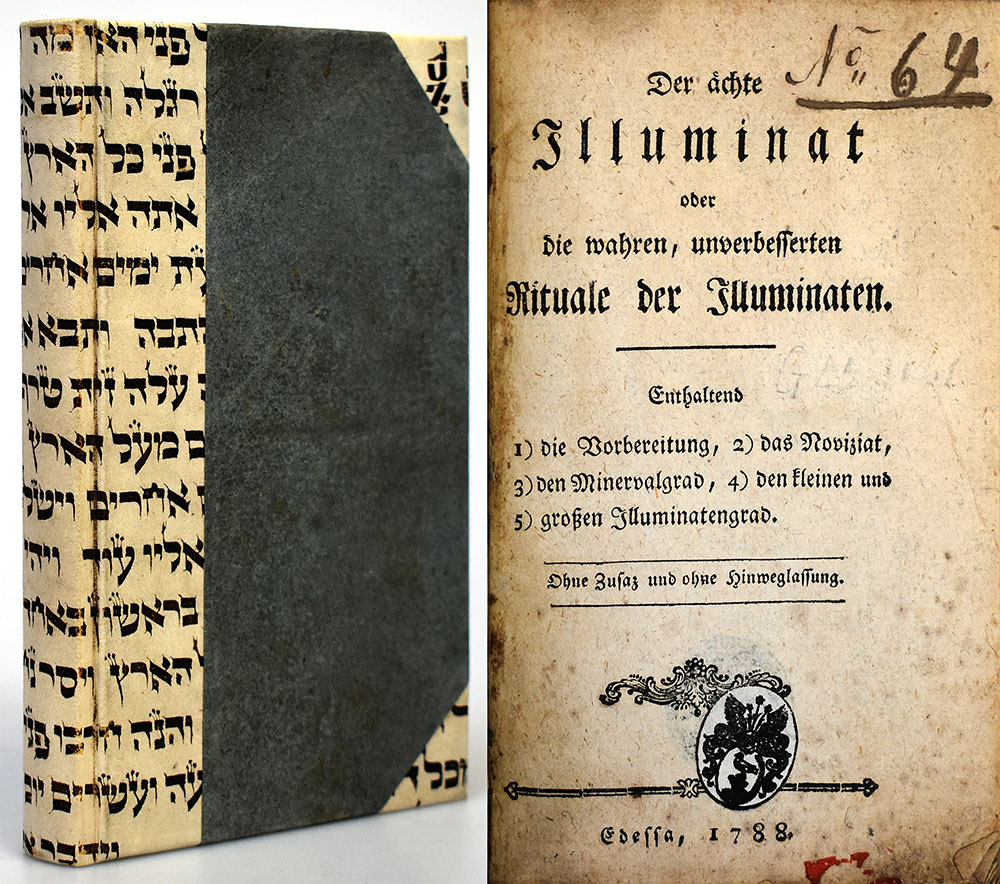 פני
רגלה ותשב
פני כל הארץ
אתה אליו
ימים
ותבא
עלה זית
מעל הארץ
אחרים
אליו עוד
הארץ ויסר
והנה חרבו
ועשרים
וידבר
No 64
Der ächte
Illuminat
oder
die wahren, unverbesserten
Rituale der Illuminaten.
Enthaltend
1) die Vorbereitung, 2) das Noviziat,
3) den Minervalgrad, 4) den kleinen und
5) großen Illuminatengrad.
Ohne Zusaz und ohne Hinweglassung.
Edessa, 1788.